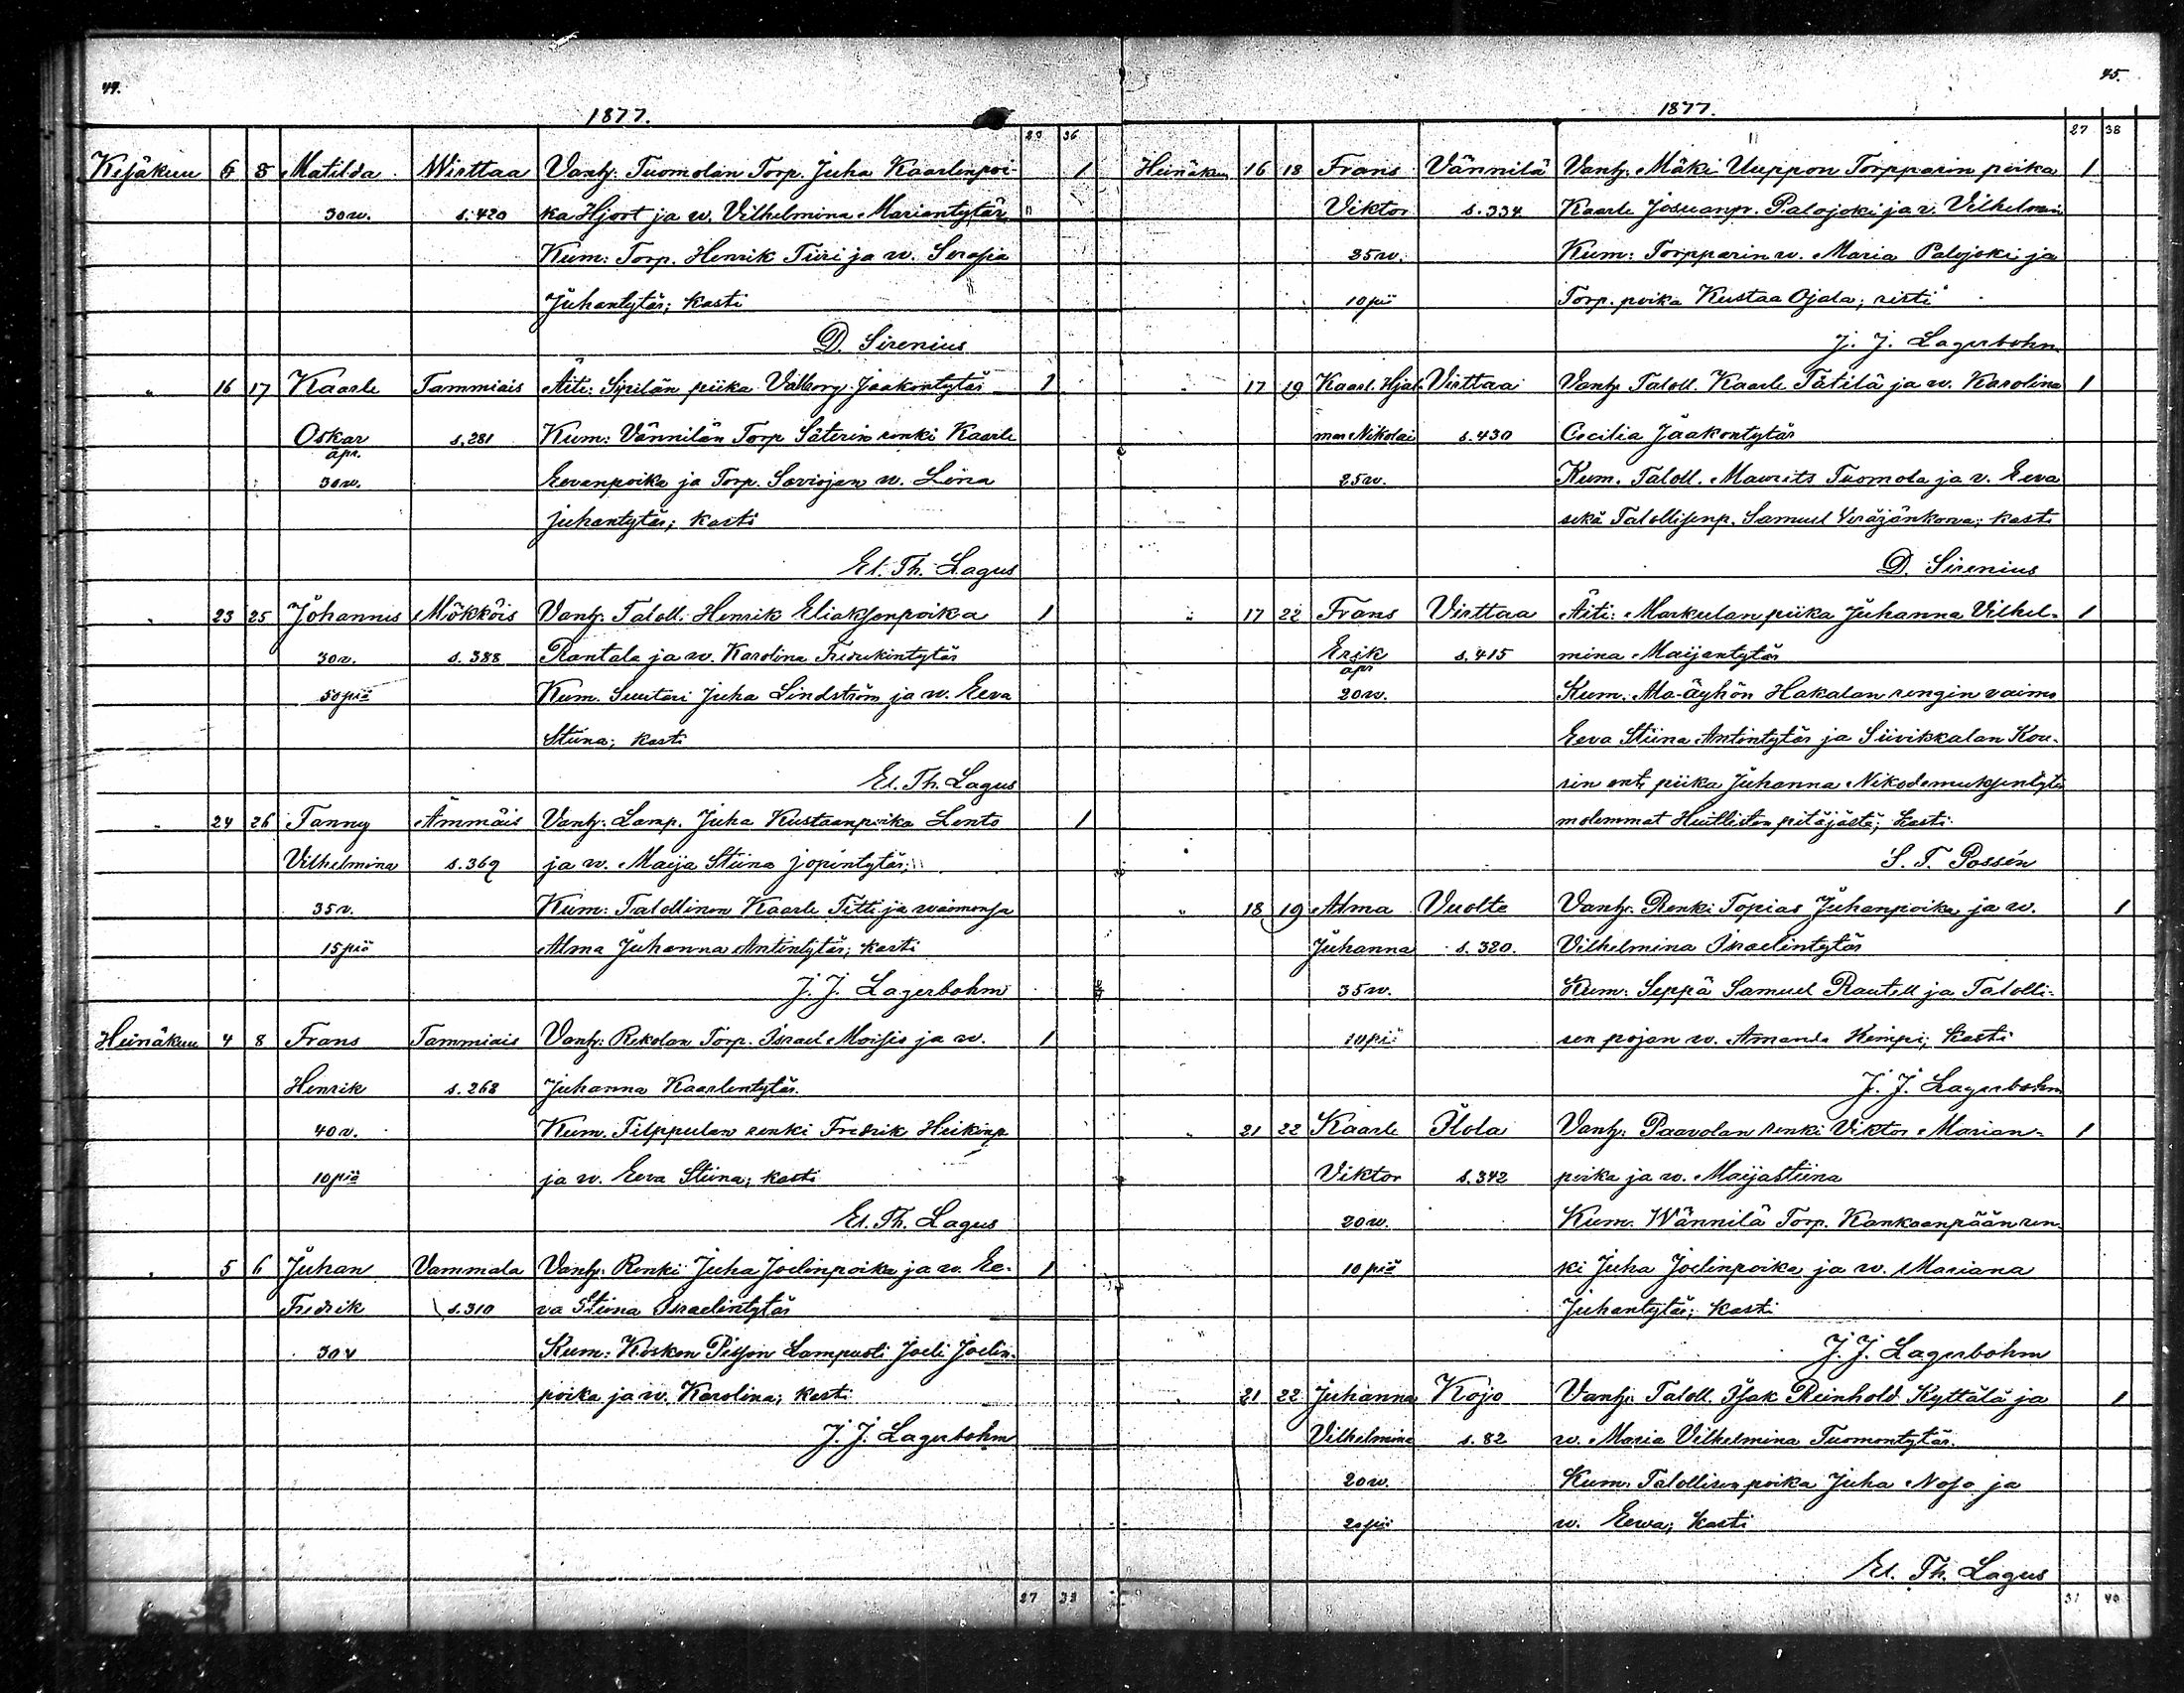 44.
1877.
29 36
Kesäkuu 6 8 Matilda Wirttaa Vanh: Tuomolan Torp. Juha Kaarlenpoi- 1
30 w. s. 420 ka Hjort ja w. Vilhelmina Mariantytär
Kum: Torp. Henrik Tiiri ja w. Serafia
Juhantytär; kasti
D. Sirenius
" 16 17 Kaarle Tammiais Äiti: Sipilän piika Valborg Jaakontytär 1
Oskar s. 281 Kum: Vännilän Torp Säterin renki Kaarle
äpr.
30 w. Eevanpoika ja Torp. Saviojan w. Lena
Juhantytär; kasti
El. Th. Lagus
" 23 25 Johannes Mökköis Vanh: Taloll. Henrik Eliaksenpoika 1
30 v. s. 388 Rantala ja w. Karolina Fredrikintytär
50 piä Kum. Suutari Juha Lindström ja w. Eeva
Stiina; kasti
El. Th. Lagus
" 24 26 Fanny Ämmäis Vanh: Lamp. Juha Kustaanpoika Lento 1
Vilhelmina s. 369 ja w. Maija Stiina Jopintytär;
35 v. Kum: Talollinen Kaarle Titti ja waimonsa
15 piä Alma Juhanna Antintytär; kasti
J. J. Lagerbohm
Heinäkuu 4 8 Frans Tammiais Vanh: Rekolan Torp. Israel Moisio ja w. 1
Henrik s. 268 Juhanna Kaarlentytär.
40 v. Kum. Filppulan renki Fredrik Heikinp
10 piä ja w. Eeva Stiina; kasti
El. Th. Lagus
" 5 6 Juhan Vammala Vanh: Renki Juha Joelinpoika ja w. Ee- 1
Fredrik s. 310 va Stiina Israelintytär
30 v Kum: Kosken Lampuoti Joeli Joelin-
poika ja w. Karolina; kasti
J. J. Lagerbohm
27 38
45.
1877.
27 38
Heinäkuu 16 18 Frans Vännilä Vanh: Mäki Uuppon Torpparin poika 1
Viktor s. 334 Kaarle Josuanp. Palojoki ja v. Vilhelmin
25 w. Kum: Torpparin w. Maria Palojoki ja
10 pii Torp. poika Kustaa Ojala; risti
J. J. Lagerbohm
" 17 19 Kaarl. Hjal- Virttaa Vanh: Taloll. Kaarle Tätilä ja w. Karolina 1
mar Nikolai s. 430 Cecilia Jaakontytär
25 w. Kum. Taloll. Maurits Tuomola ja v. Eeva
sekä Talollisenp. Samuel Veräjänkorva; kasti
D. Sirenius
" 17 22 Frans Virttaa Äiti: Markulan piika Juhanna Vilhel- 1
Erik s. 415 mina Maijantytär
äpr
20 w. Kum: Ala-äyhön Hakalan rengin vaimo
Eeva Stiina Antintytär ja Siivikkalan Kou-
rin ent. piika Juhanna Nikodemuksentytär
molemmat Huittisten pitäjästä; kasti
S. F. Possén
" 18 19 Alma Vuolte Vanh: Renki Topias Juhanpoika ja w. 1
Juhanna s. 320. Vilhelmina Israelintytär
35 w. Kum: Seppä Samuel Rautell ja Talolli-
10 pii sen pojan w. Amanda Kempi; kasti
J. J. Lagerbohm
" 21 22 Kaarle Illola Vanh: Paavolan renki Viktor Marian- 1
Viktor s. 342 poika ja w. Maijastiina
20 w. Kum. Wännilä Torp. Kankaanpään ren-
10 piä ki Juha Joelinpoika ja w. Mariana
Juhantytär; kasti
J. J. Lagerbohm
" 21 22 Juhanna Kojo Vanh: Taloll. Isak Reinhold Kyttälä ja 1
Vilhelmina s. 82 w. Maria Vilhelmina Tuomontytär.
20 w. Kum: Talollisen poika Juha Nojo ja
20 pii w. Eewa; kasti
El. Th. Lagus
31 40